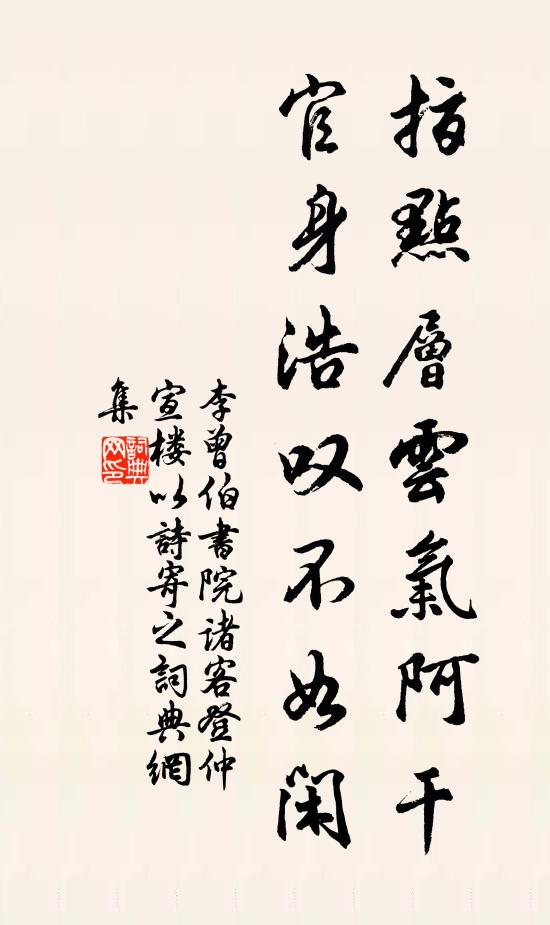 指點層雲氣阿干
官身浩叹不如閑
李曾伯書院诸客登仲
宣楼以詩寄之詞典網
集
詞典網印